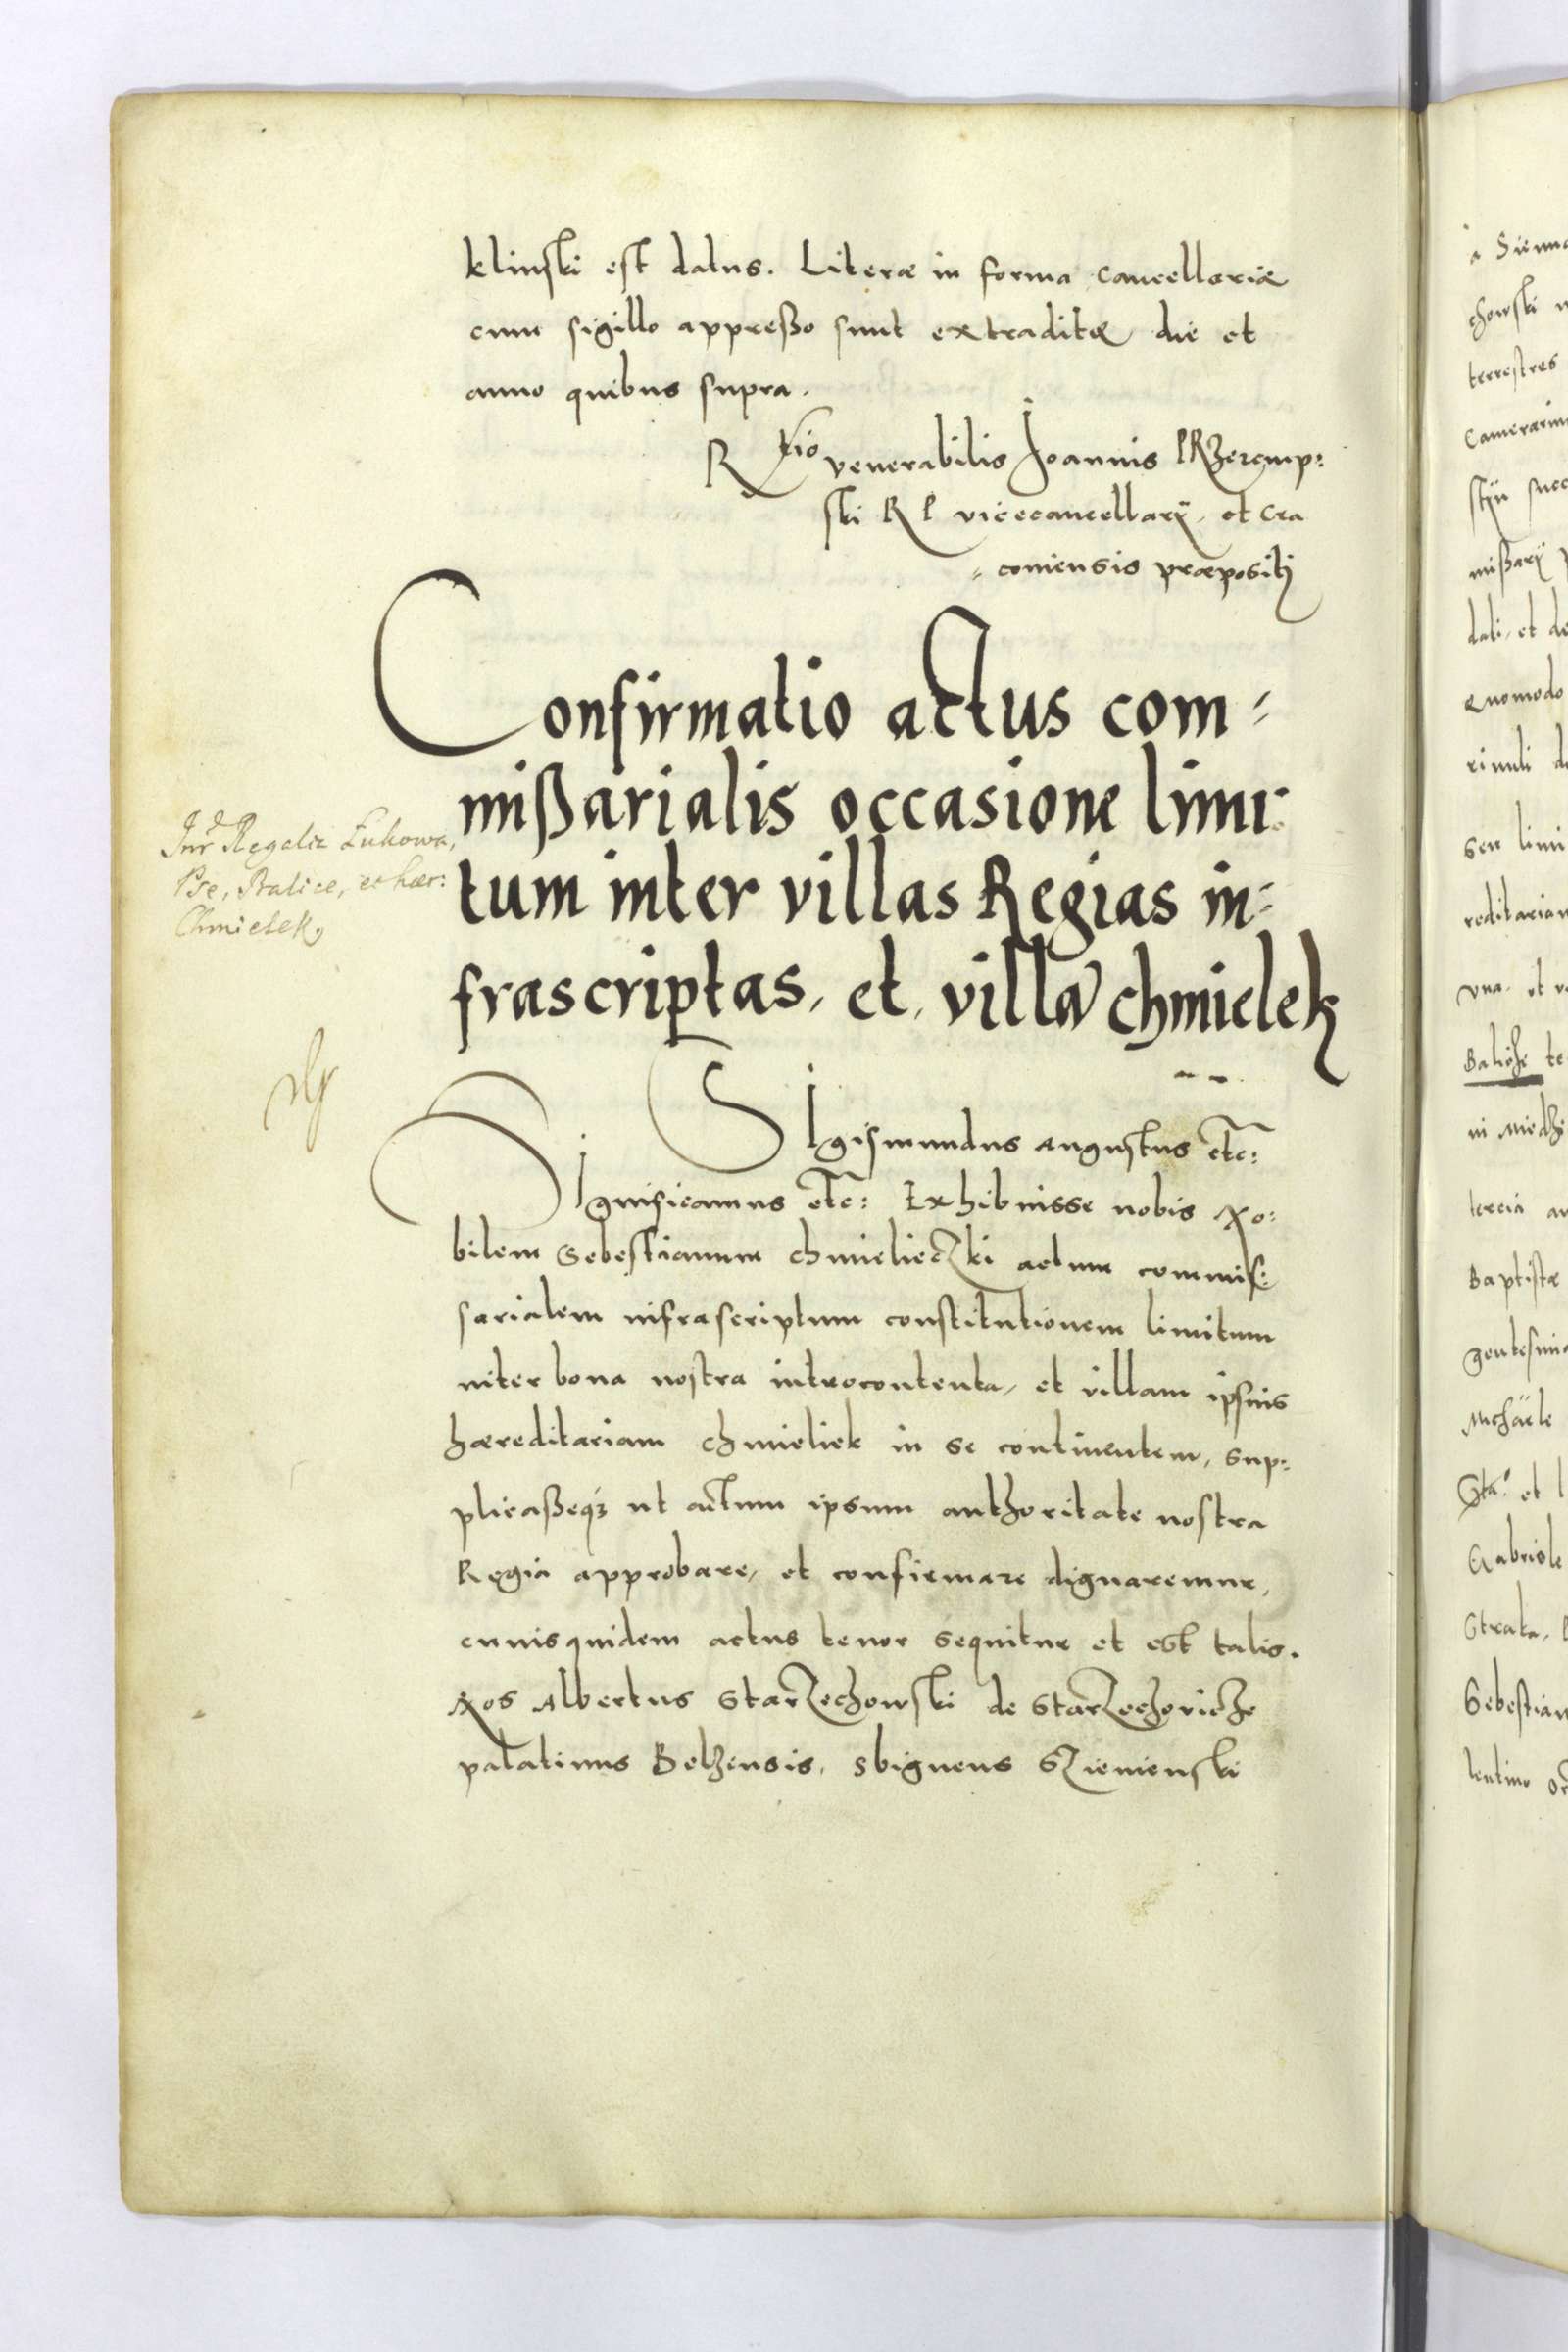 klinski est datus. Literæ in forma cancellariæ
cum sigillo appreßo sunt extraditæ die et
anno quibus supra.
Rtio venerabilis Joannis PRzeremp:
ski R P vicecancellarij, et Cra
= coviensis præpositi
Confirmatio actus com=
mißarialis occasione limi:
tum inter villas Regias in=
frascriptas, et, villa chmielek
Int Regalia Łukowa,
Pse, Balice, et hær:
Chmielek,
SIgismundus Augustus etc:
SIgnificamus etc: Exhibuisse nobis No:
bilem Sebestianum chmielieczki actum commis:
sarialem infrascriptum constitutionem limitum
inter bona nostra introcontenta, et villam ipsius
hæreditariam chmieliek in se continentem, sup=
plicaßeq3 ut actum ipsum authoritate nostra
Regia approbare, et confirmare dignaremur,
cuius quidem actus tenor sequitur et est talis.
Nos Albertus Starzechowski de Starzechovicze
palatinus Belzensis, Sbigneus Szienienski
a Sienna
chowski
terrestres
Camerarius
mißarij
dali, et de
quomodo
rivuli
seu limi
reditariam
una, et
Balicze te
in Miedzi
tercia
Baptistæ
gentesimo
Michaele
Sta: et
Gabriele
Strata,
Sebestian
lentino